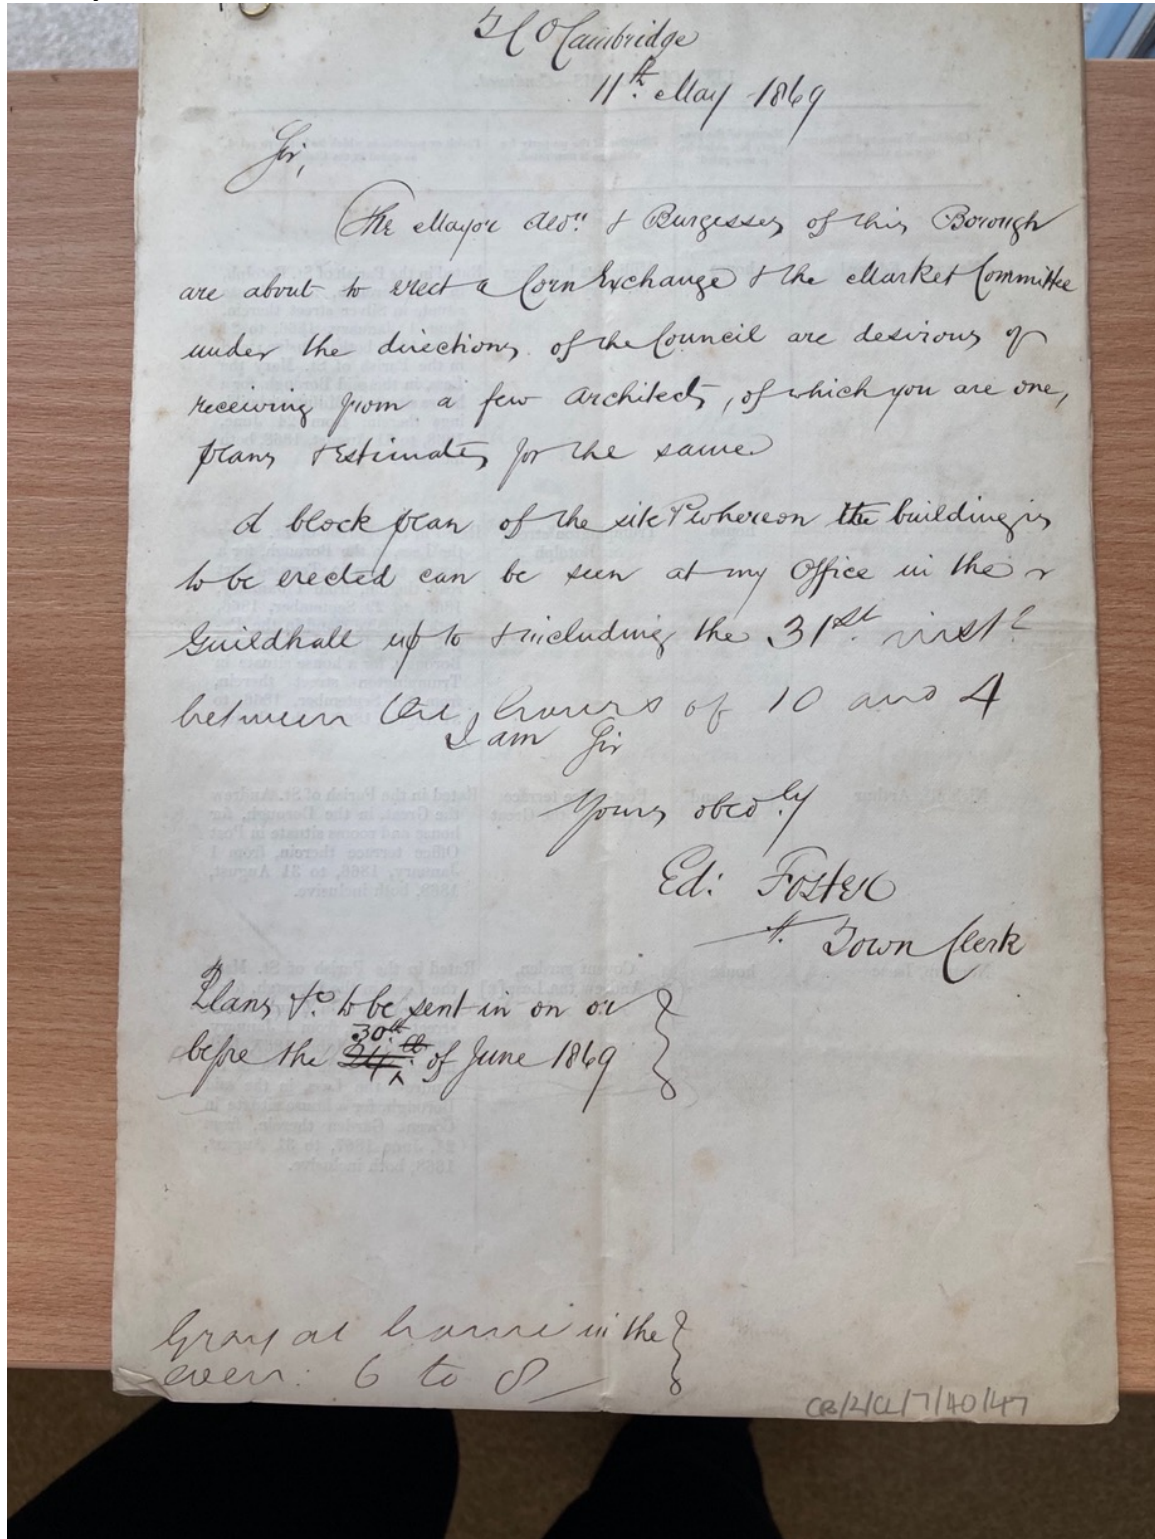 T C O Cambridge
11th. May 1869
Sir,
The Mayor Aldn. & Burgesses of this Borough
are about to erect a Corn Exchange & the Market Committee
under the directions of the Council are desirous of
receiving from a few Architects, of which you are one,
plans & Estimates for the same
A block plan of the site whereon the building is
to be erected can be seen at my Office in the
Guildhall up to & including the 31st. inst
between the hours of 10 and 4
I am Sir
Yours obedly
Ed: Foster
Town Clerk
Plans &c. to be sent in on or
30th
before the of June 1869
Gray at home in the
even: 6 to 8
CB/2/CL/7/40/47